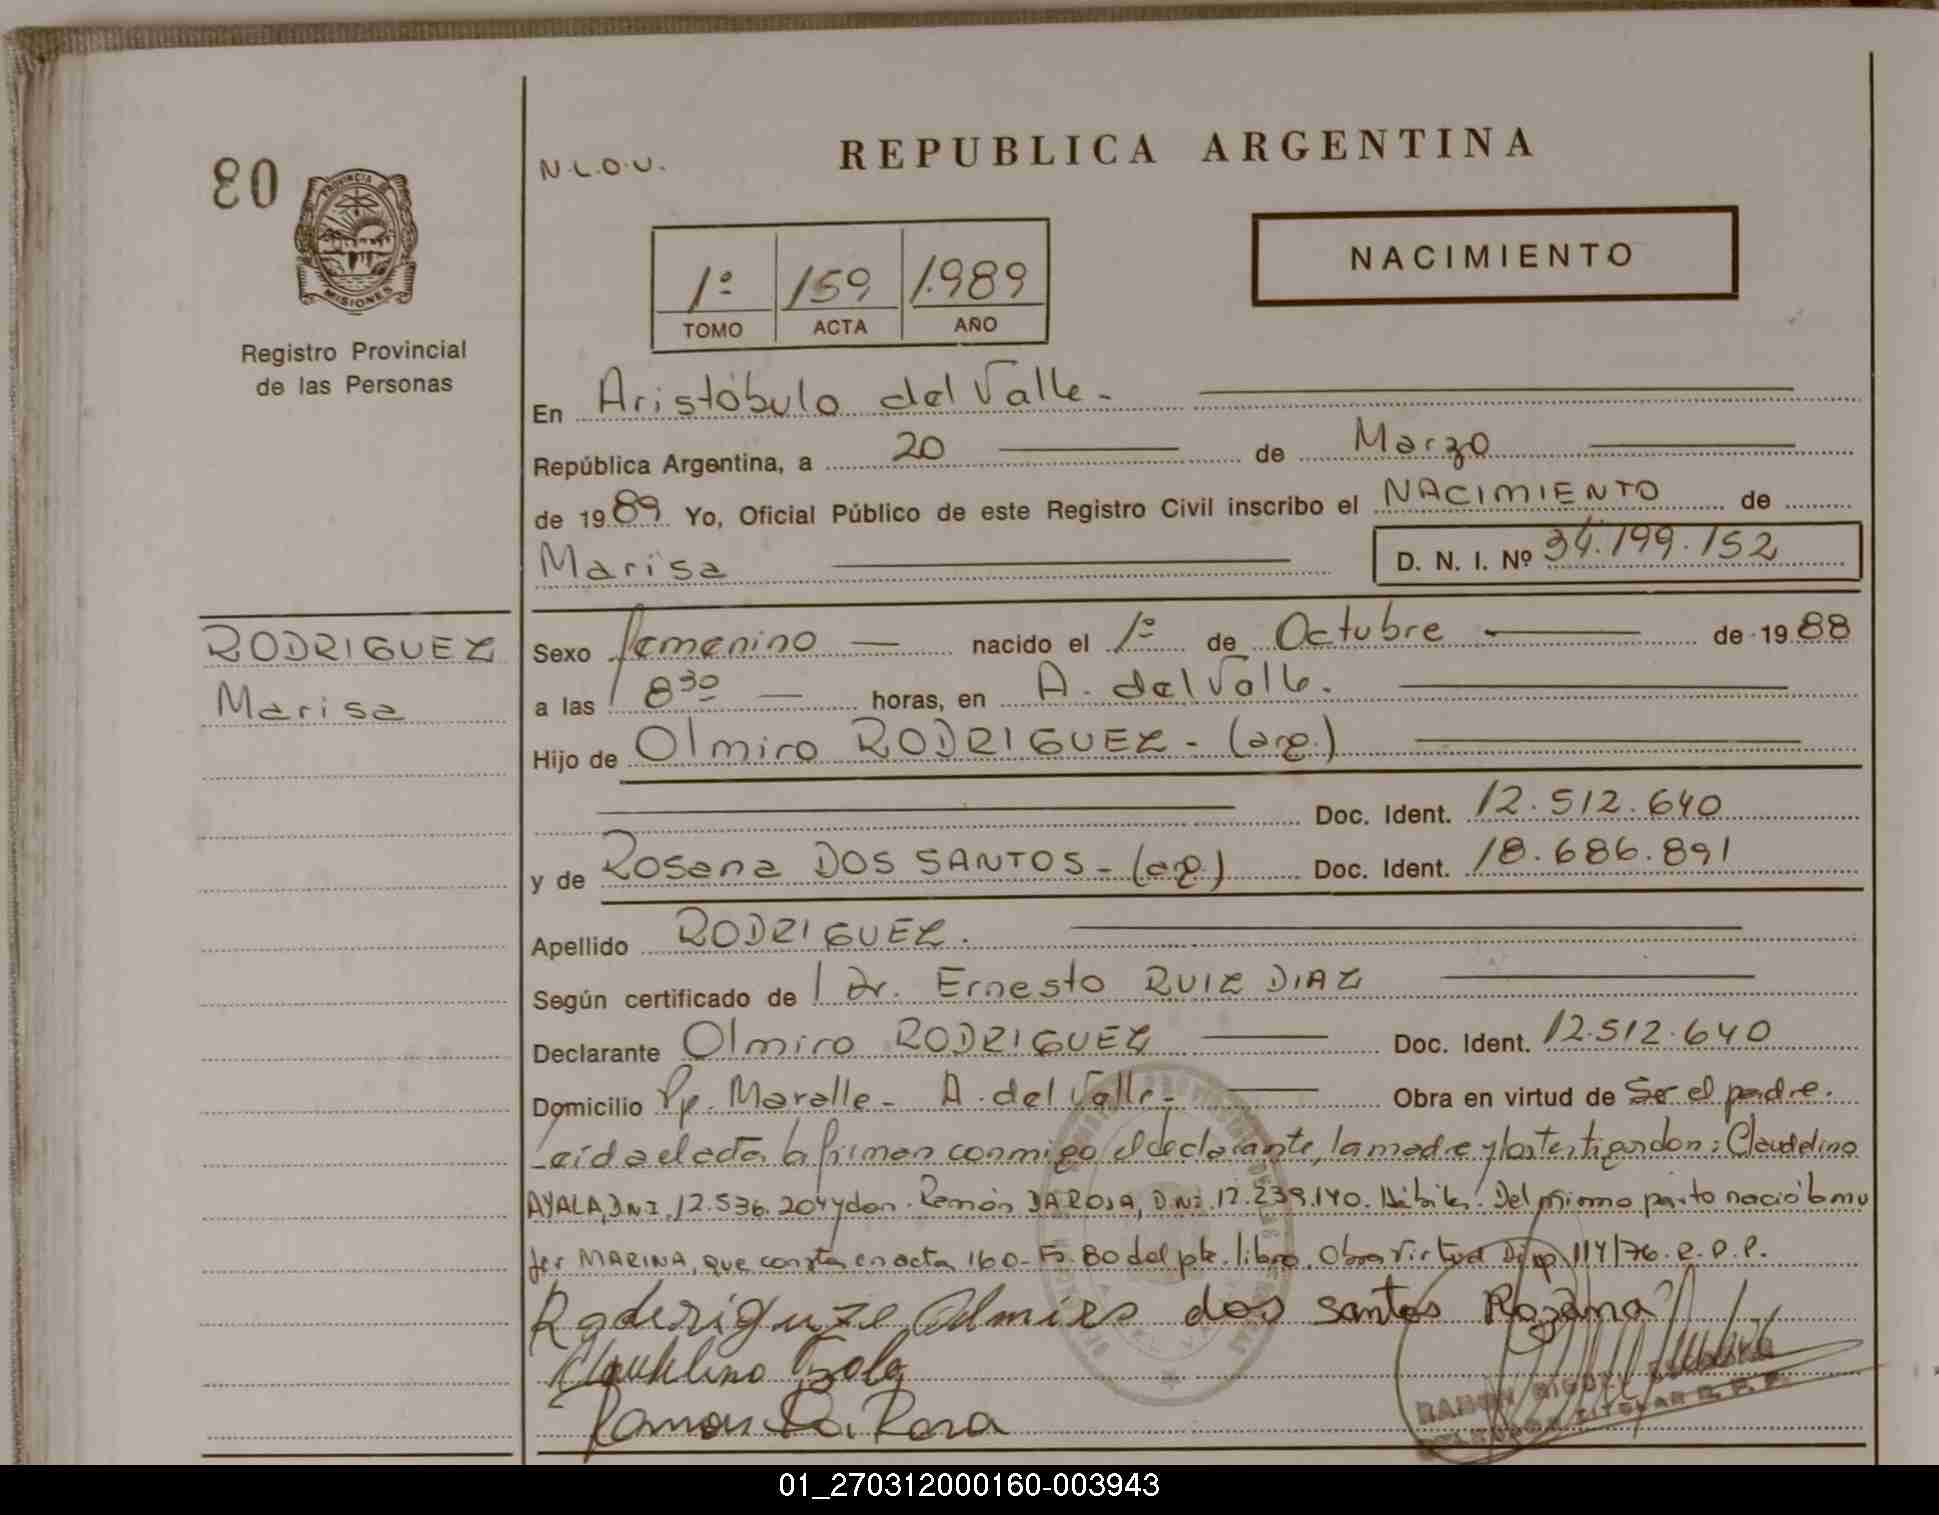 80
PROVINCIA DE
MISIONES
Registro Provincial
de las Personas
N.L.O.U.
REPUBLICA ARGENTINA
1º 159 1.989
TOMO ACTA AÑO
NACIMIENTO
En Aristóbulo del Valle.-
República Argentina, a 20 de Marzo
de 1989 Yo, Oficial Público de este Registro Civil inscribo el NACIMIENTO de
Marisa D. N. I. Nº 34.199.152
RODRIGUEZ
Marisa
Sexo femenino nacido el 1º de Octubre de 1988
a las 8 30 horas, en A. del Valle.
Hijo de Olmiro RODRIGUEZ - (arg.)
Doc. Ident. 12.512.640
y de Rosana DOS SANTOS - (arg.) Doc. Ident. 18.686.891
Apellido RODRIGUEZ.
Según certificado de Dr. Ernesto RUIZ DIAZ
Declarante Olmiro RODRIGUEZ Doc. Ident. 12.512.640
Domicilio Pje. Maralle - A. del Valle.- Obra en virtud de Ser el padre.
Leída el acta la firman conmigo el declarante, la madre y los testigos don: Claudelino
AYALA, D.N.I. 12.536.204 y don. Ramón DA ROSA, D.N.I. 17.239.140. Hábiles. Del mismo parto nació la mu
jer MARINA, que consta en acta 160- Fº. 80 del pte. libro. Obra virtud Disp. 114/76. R.P.P.
Roderiguze Olmiro dos santos Rozana
Claudelino
Ramon Da Rosa
RAMON MIGUEL
TITULAR R.P.P.
01_270312000160-003943